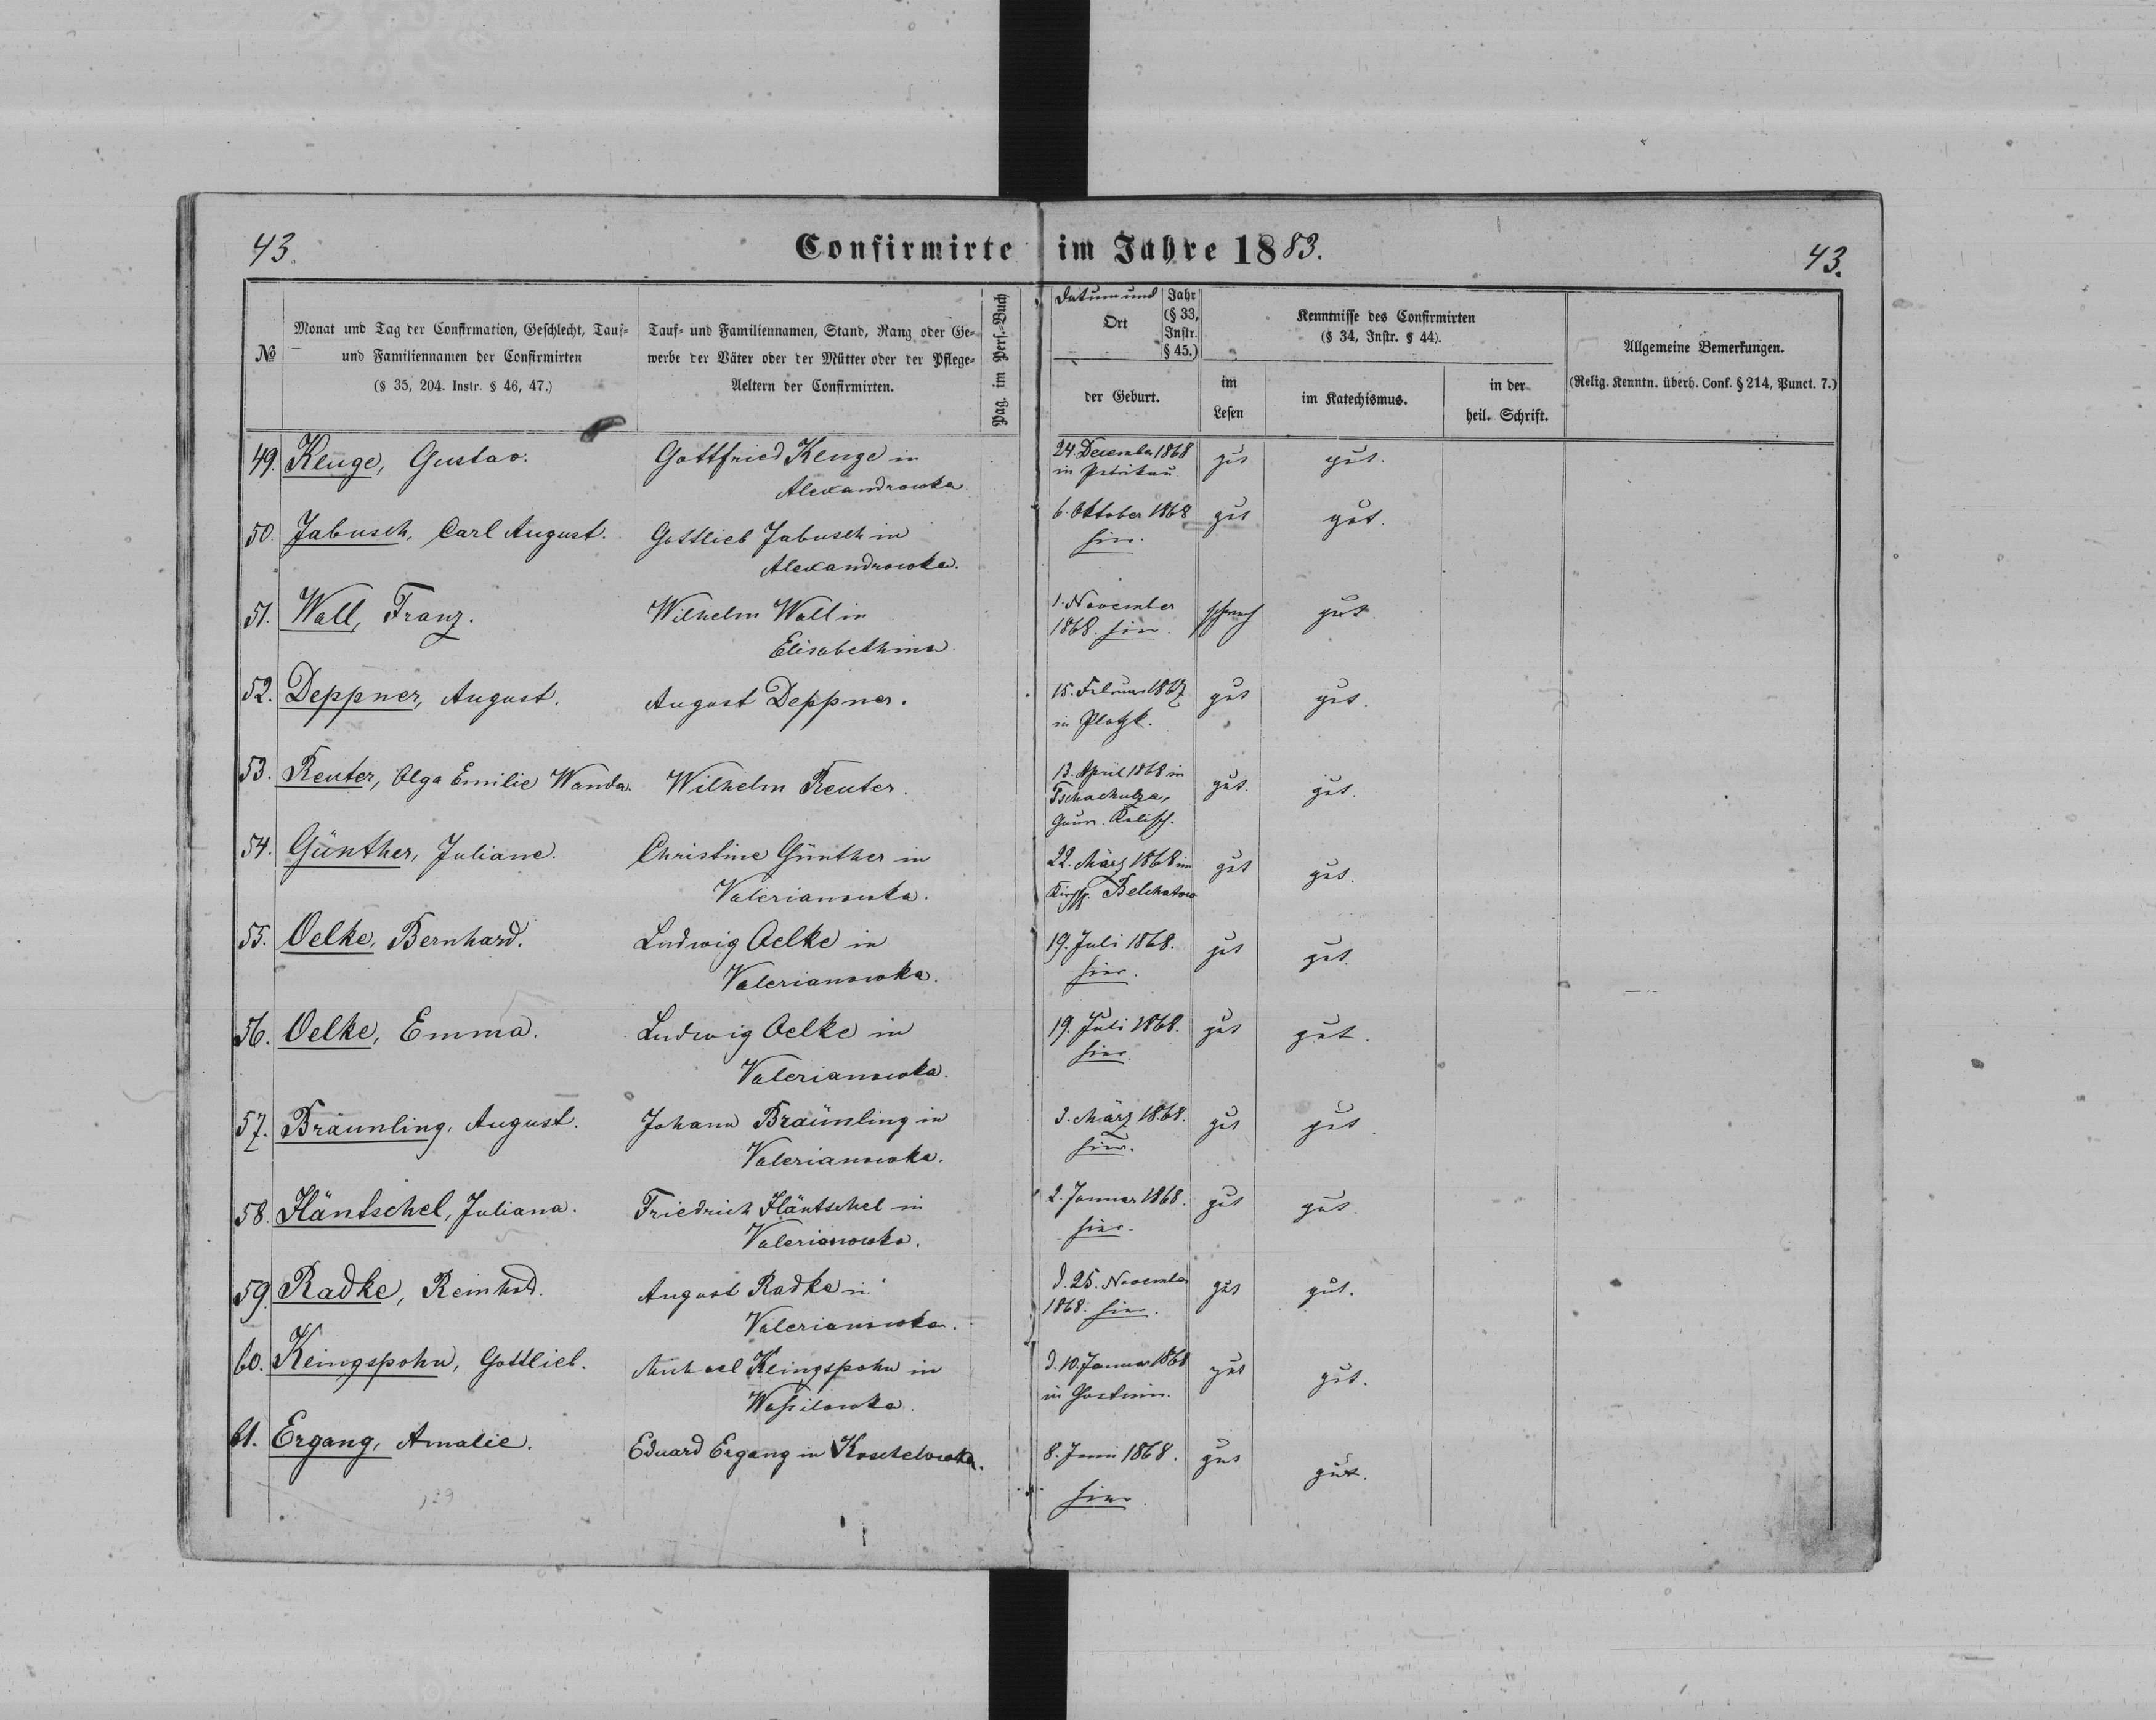 43.
Confirmirte im Jahre 1883.
43.
№
Monat und Tag der Confirmation, Geschlecht, Tauf=
und Familiennamen der Confirmirten
(§ 35, 204. Instr. § 46, 47.)
Tauf= und Familiennamen, Stand, Rang oder Ge=
werbe der Väter oder der Mütter oder der Pflege=
Aeltern der Confirmirten.
Pag. im Pers.=Buch
Datum und
Ort
Jahr
(§ 33,
Instr.
§ 45.)
der Geburt.
Kenntnisse des Confirmirten
(§ 34, Instr. § 44).
im
Lesen
im Katechismus.
in der
heil. Schrift.
Allgemeine Bemerkungen.
(Relig. Kenntn. überh. Conf. § 214, Punct. 7.)
49. Kenge, Gustav. Gottfried Kenge in 24. December 1868 gut gut.
Alexandrowka in Petrikau
50. Jabusch, Carl August. Gottlieb Jabusch in 6. Oktober 1868 gut gut.
Alexandrowka. hier.
51. Wall, Franz. Wilhelm Wall in 1. November schwach gut
Elisabethina. 1868. hier.
52. Deppner, August. August Deppner. 15. Februar 1867 gut gut.
in Plotzk.
53. Reuter, Olga Emilie Wanda. Wilhelm Reuter. 13. April 1868 in gut. gut.
Tschachulza,
Gouv. Kalisch.
54. Günther, Juliane. Christine Günther in 22. März 1868 im gut gut.
Valerianowka. Kirchsp. Belchatow
55. Oelke, Bernhard. Ludwig Oelke in 19. Juli 1868. gut gut.
Valerianowka. hier.
56. Oelke, Emma. Ludwig Oelke in 19. Juli 1868. gut gut.
Valerianowka. hier.
57. Bräunling, August. Johann Bräunling in 3. März 1868. gut gut
Valerianowka. hier.
58. Häntschel, Juliana. Friedrich Häntschel in 2. Januar 1868. gut gut.
Valerianowka. hier.
59. Radke, Reinhold. August Radke in d. 25. November gut gut.
Valerianowka. 1868. hier.
60. Kleingspohn, Gottlieb. Michael Kleingspohn in d. 10. Januar 1868 gut gut.
Wassilowka. in Gostinin.
61. Ergang, Amalie. Eduard Ergang in Koschelowka. 8. Juni 1868. gut gut.
hier.
129